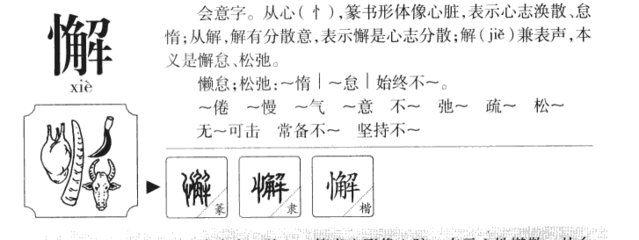 懈
xiè
会意字。从心(忄),篆书形体像心脏,表示心志涣散、怠
惰;从解,解有分散意,表示懈是心志分散;解(jiě)兼表声,本
义是懈怠、松弛。
懒怠;松弛:~惰|~怠|始终不~。
~倦 ~慢 ~气 ~意 不~ 弛~ 疏~ 松~
无~可击 常备不~ 坚持不~
懈 篆
懈 隶
懈 楷